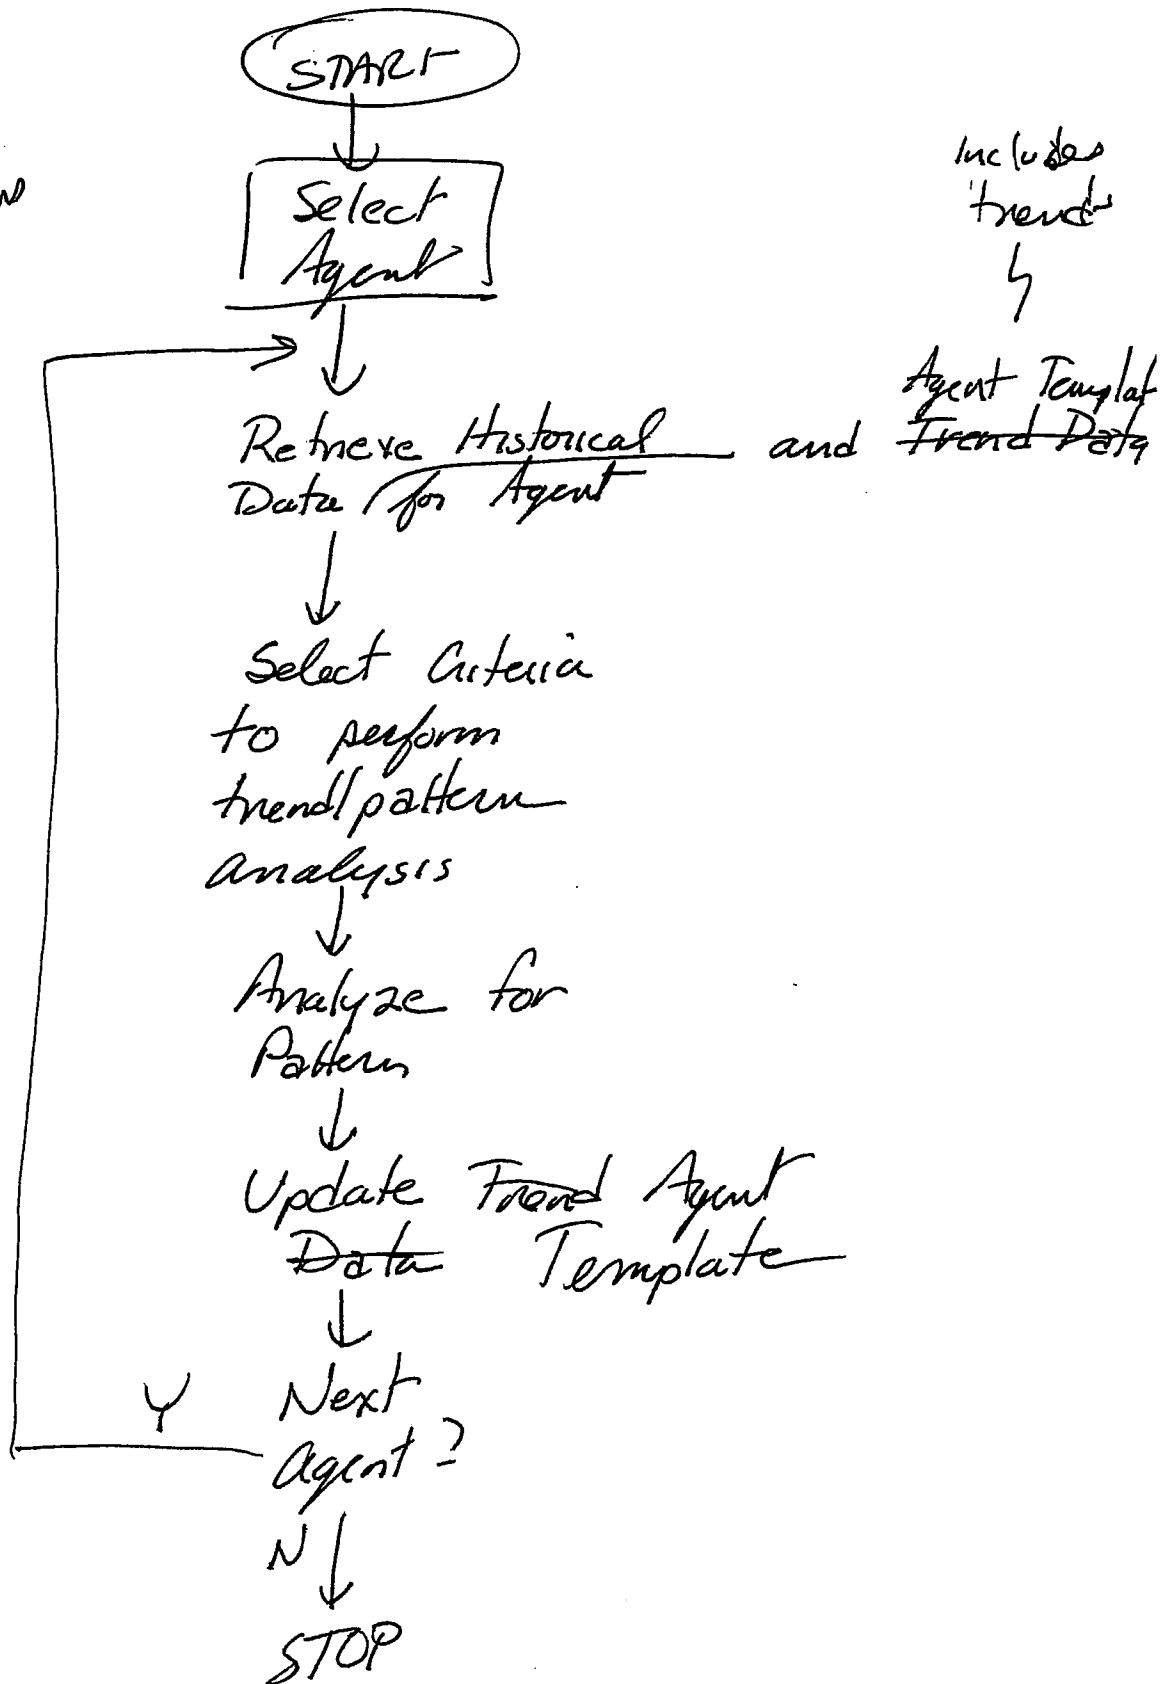 START
Select
Agent
Includes
trends
Agent Templat
Retrieve Historical and Trend Data
Data for Agent
Select Criteria
to perform
trend/pattern
analysis
Analyze for
Pattern
Update Trend Agent
Data Template
Y
Next
agent?
N
STOP